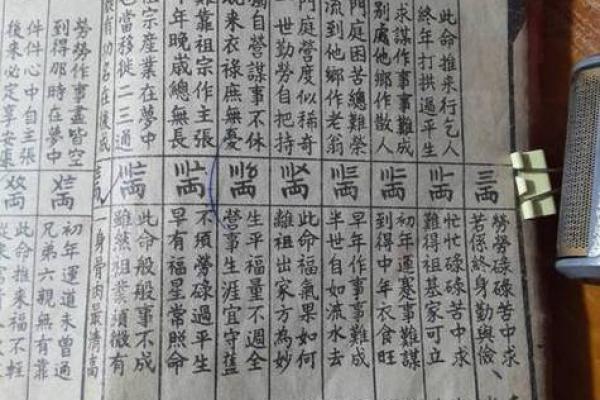 此命推来行乞人
終年打拱過平生
求謀作事事難成
別處他鄉作散人
門庭困苦總難榮
流到他鄉作老翁
門庭營度似稀奇
一世勤勞自把持
獨自營謀事不休
来衣祿庶無憂
難靠祖宗作主張
年晚歲總無長
祖宗產業在夢中
當移徙二三通
有功名在後成
勞勞作事盡皆空
到得那時在夢中
件件心中自主張
後來必定享安康
三両
勞勞碌碌苦中求
若係終身勤與儉、
忙忙碌碌苦中求
難得祖基家可立
初年運蹇事難謀
到得中年衣食旺
早年作事事難成
半世自如流水去
此命福氣果如何
離祖出家方為妙
生平福量不週全
營事生涯宜守舊
不須勞碌過平生
早有福星常照命
此命般般事不成
雖然祖業須微有
一身骨肉最清高
初年運道未曾通
兄弟六親無有靠
此命推來福不輕